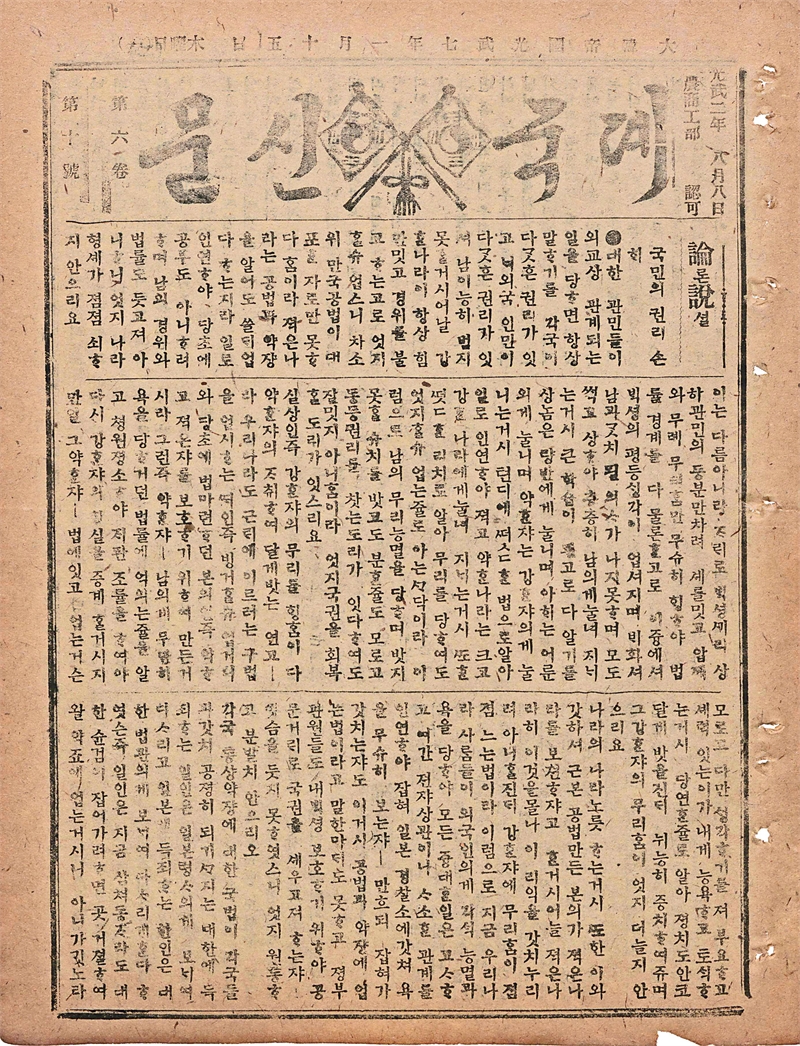 大韓帝國光武七年一月十五日 木曜日
光武二年 八月八日
農商工部 認可
뎨국신문
第六卷
第十號
論론說셜
국민의 권리 손
히
●대한 관민들이
외교상 관계되는
일을 당ᄒᆞ면 항상
말ᄒᆞ기를 각국이
다 ᄀᆞᆺ흔 권리가 잇
고 ᄂᆡ외국 인민이
다 ᄀᆞᆺ흔 권리가 잇
셔 남이 능히 범치
못ᄒᆞᆯ거시어날 강
ᄒᆞᆫ나라이 항상 힘
만밋고 경위를 불
고 ᄒᆞ는고로 엇지
ᄒᆞᆯ슈 업스니 차소
위 만국공법이 대
포 ᄒᆞᆫ자로만 못ᄒᆞ
다 홈이라 젹은나
라는 공법과 약쟝
을 알어도 쓸ᄃᆡ업
다 ᄒᆞ는지라 일로
인연ᄒᆞ야 당초에
공부도 아니ᄒᆞ려
ᄒᆞ며 남의 경위와
법률도 듯고져 아
니ᄒᆞ니 엇지 나라
형셰가 졈졈 쇠ᄒᆞ
지 안으리요
이는 다름아니라 ᄌᆞ리로 ᄇᆡᆨ셩ᄭᅵ리 상
하관민의 등분만차려 셰를밋고 압제
와 무례 무리홈만 무슈히 ᄒᆡᆼᄒᆞ야 법
률 경계를 다 물론ᄒᆞ고로 이즁에셔
ᄇᆡᆨ셩의 평등ᄉᆡᆼ각이 업셔지며 비화셔
남과 ᄀᆞᆺ치 될 의ᄉᆞ가 나지못ᄒᆞ며 모도
썩고 상ᄒᆞ야 층층히 남의게눌녀 지ᄂᆡ
는거시 큰 학습이 되고로 다 알기를
상놈은 량반에게 눌니며 아ᄒᆡ는 어룬
의게 눌니며 약ᄒᆞᆫ쟈는 강ᄒᆞᆫ쟈의게 눌
니는거시 텬디에 ᄯᅥᆺᄯᅥᆺᄒᆞᆫ 법으로알아
일로 인연ᄒᆞ야 젹고 약ᄒᆞᆫ나라는 크고
강ᄒᆞᆫ 나라에게눌녀 지ᄂᆡ는거시 ᄯᅩᄒᆞᆫ
ᄯᅥᆺᄯᅥᆺᄒᆞᆫ 리치로 알아 무리를 당ᄒᆞ여도
엇지ᄒᆞᆯ슈 업는줄로 아는ᄭᆞ닭이라 이
럼으로 남의 무리능멸을 당ᄒᆞ며 밧지
못ᄒᆞᆯ 슈치를 밧고도 분ᄒᆞᆫ줄도 모로고
동등권리를 찻는도리가 잇다ᄒᆞ여도
잘밋지 아니홈이라 엇지국권을 회복
ᄒᆞᆯ 도리가 잇스리요
실상인즉 강ᄒᆞᆫ쟈의 무리를 ᄒᆡᆼ홈이 다
약ᄒᆞᆫ쟈의 ᄌᆞ취ᄒᆞ여 달게밧는 연고ㅣ
라 우리나라도 근ᄅᆡ에 이르러는 구법
와 당초에 법마련ᄒᆞ던 본의인즉 약ᄒᆞ
고 젹은쟈를 보호ᄒᆞ기 위ᄒᆞ여 만든거
시라 그런즉 약ᄒᆞᆫ쟈ㅣ 남의게 무단히
욕을 당ᄒᆞ거던 법률에 억의는줄을 알
고 쳥원졍소ᄒᆞ야 져판 조률을 ᄒᆞ여야
다시 강ᄒᆞᆫ쟈의 ᄒᆡᆼ실을 증계 ᄒᆞᆯ거시지
만일 그약ᄒᆞᆫ쟈ㅣ 법에잇고 업는거슨
모로고 다만 ᄉᆡᆼ각ᄒᆞ기를 져 부요ᄒᆞ고
셰력 잇는이가 내게 능욕ᄒᆞ고 토ᄉᆡᆨᄒᆞ
는거시 당연ᄒᆞᆫ줄로 알아 졍치도안코
달게 밧을진ᄃᆡ 뉘능히 증치ᄒᆞ여쥬며
그강ᄒᆞᆫ쟈의 무리홈이 엇지 더늘지 안
으리요
나라의 나라노릇 ᄒᆞ는거시 ᄯᅩ한 이와
갓하셔 근본 공법만든 본의가 젹은나
라를 보젼ᄒᆞ쟈고 ᄒᆞᆫ거시어늘 젹은나
라히 이것을몰나 이 리익을 갓치누리
려 아니ᄒᆞᆯ진ᄃᆡ 강ᄒᆞᆫ쟈에 무리홈이 졈
졈 느는법이라 이럼으로 지금 우리나
라 사ᄅᆞᆷ들이 외국인의게 각ᄉᆡᆨ 능멸과
욕을 당ᄒᆞ야 모든 중대ᄒᆞᆫ일은 고ᄉᆞᄒᆞ
고 여간 젼쟈상관이나 ᄉᆞ소ᄒᆞᆫ 관계를
인연ᄒᆞ야 잡혀 일본 경찰소에갓쳐 욕
을 무슈히 보는쟈ㅣ 만흐되 잡혀가
갓치는쟈도 이거시 공법과 약쟝에 업
는법이라고 말한마듸도 못ᄒᆞ고 졍부
관원들도 내ᄇᆡᆨ셩 보호ᄒᆞ기 위ᄒᆞ야 공
문거리로 국권을 셰우고져 ᄒᆞ는쟈ㅣ
잇슴을 듯지 못ᄒᆞ엿스니 엇지 원통ᄒᆞ
고 분발치 안으리오
각국 통상약쟝에 대한 국법이 각국들
과갓치 공졍히 되기ᄭᆞ지는 대한에 득
죄ᄒᆞ는 일인은 일본령ᄉᆞ의게 보ᄂᆡ여
다ᄉᆞ리고 일본에 득죄ᄒᆞ는 한인은 대
한 법관의게 보ᄂᆡ여 다ᄉᆞ리게ᄒᆞᆫ다 ᄒᆞ
엿슨즉 일인은 지금 참쳐동ᄌᆞ라도 대
한 슌검이 잡어가려ᄒᆞ면 곳 거졀ᄒᆞ여
왈 약죠에 업는거시니 아니가깃노라